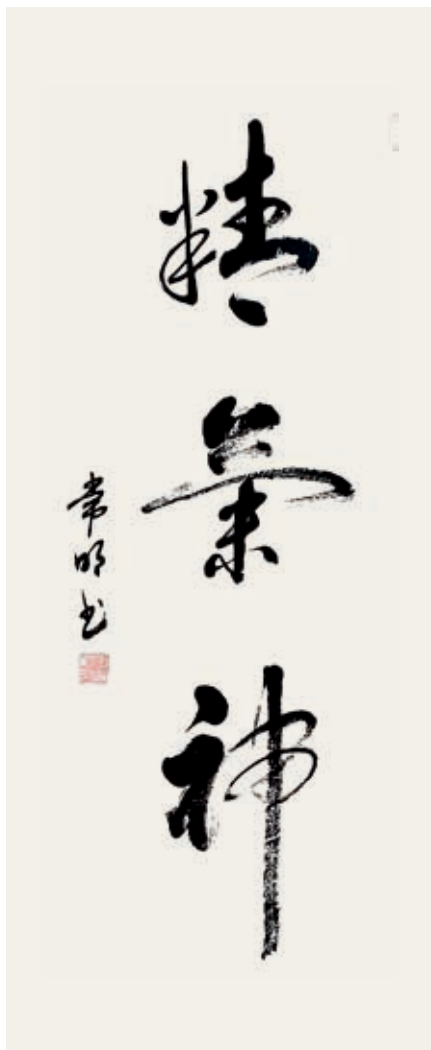 精氣神
常明书